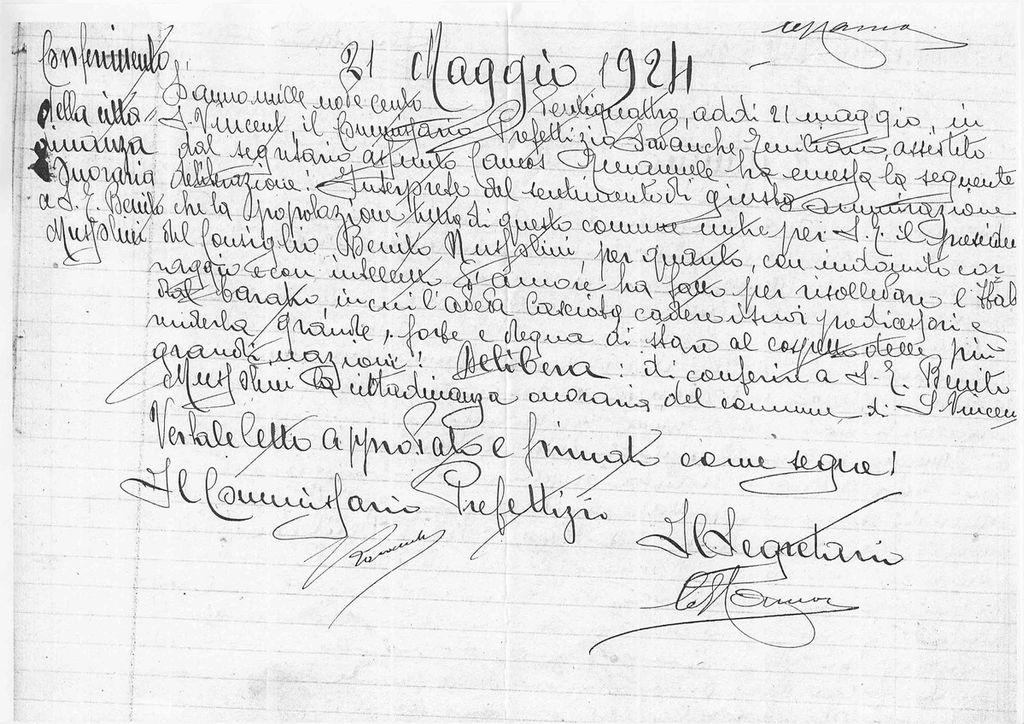 21 Maggio 1924
Conferimento
della città
dinanza
Onoraria
a S. E. Benito
Mussolini
L'anno mille nove cento ventiquattro, addi 21 maggio, in
S. Vincent il Commissario Prefettizio Savanche Emiliano, assistito
dal segretario assunto Camos Emanuele ha emessa la seguente
deliberazione: Interprete dei sentimenti di giusta ammirazione
che la popolazione tutta di questo comune nutre per S. E. il Presiden
del Consiglio Benito Mussolini, per quanto, con indomito cor
raggio e con intelletto d'amore, ha fatto per risollevare l'Ital
dal baratro in cui l'aveva lasciata cadere i suoi predecessori e
renderla grande, forte e degna di stare al cospetto delle più
grandi nazioni! Delibera: di conferire a S. E. Benito
Mussolini la cittadinanza onoraria del comune di S. Vincen
Verbale letto approvato e firmato come segue!
Il Commissario Prefettizio
Il Segretario